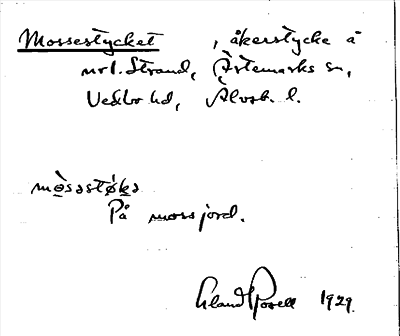 Mossestycket , åkerstycke å
nr 1. Strand, Ärtemarks sn,
Vedbo hd, Älvsb. l.
mòsəstøkə
På mossjord.
Erland Rosell 1929.